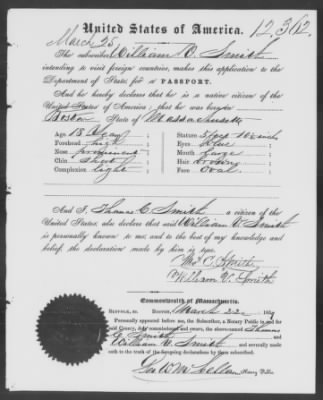 United States of America.
12,362
March 25
The subscriber William V. Smith
intending to visit foreign countries, makes this application to the
Department of State for a PASSPORT.
And he hereby declares that he is a native citizen of the
United States of America; that he was born in
Boston State of Massachusetts
Age 18 Years Stature 5 feet 10½ inch
Forehead high Eyes blue
Nose prominent Mouth large
Chin Short Hair brown
Complexion light Face Oval
And I, Thomas C. Smith a citizen of the
United States, also declare that said William V. Smith
is personally known to me, and to the best of my knowledge and
belief, the declaration made by him is true.
Thos C. Smith
William V. Smith
Commonwealth of Massachusetts.
SUFFOLK, ss. BOSTON, March 22
Personally appeared before me, the Subscriber, a Notary Public in and for
said County, duly commissioned and sworn, the above-named Thomas
C. Smith
William V. Smith and severally made
oath to the truth of the foregoing declarations by them subscribed.
Notary Public.